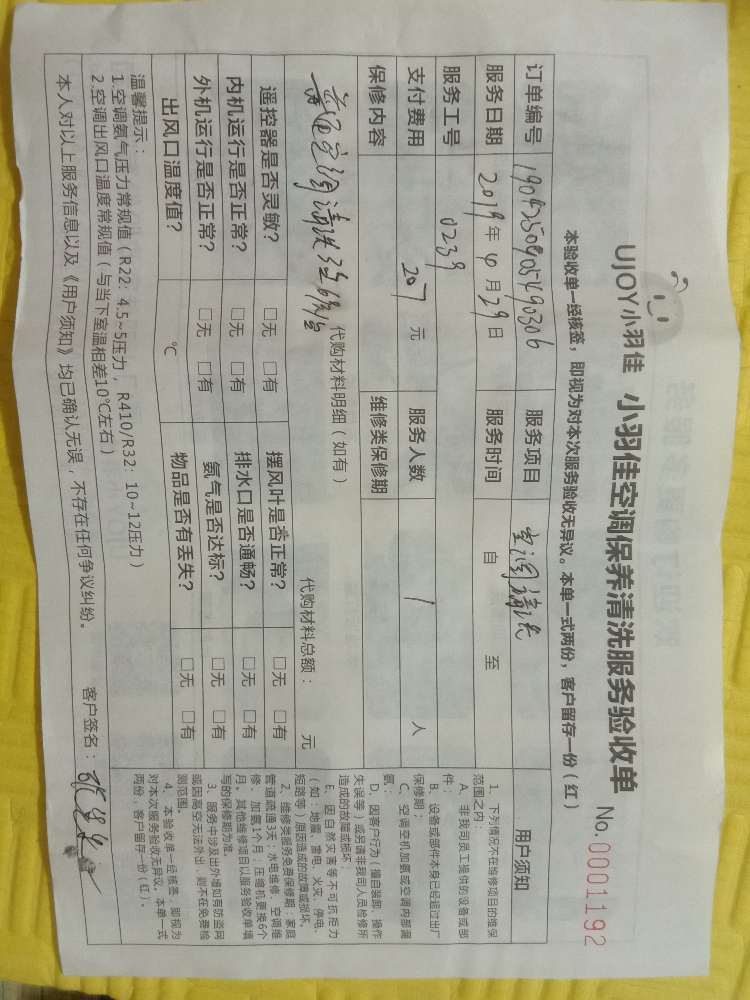 UJOY小羽佳 小羽佳空调保养清洗服务验收单
No. 0001192
本验收单一经核签，即视为对本次服务验收无异议。本单一式两份，客户留存一份（红）
订单编号 服务项目 空调清洗
服务日期 2019年4月29日 服务时间 自 至
服务工号 0239
支付费用 207元 服务人数 1人
保修内容 维修类保修期
代购材料明细（如有） 代购材料总额： 元
普通空调清洗
遥控器是否灵敏？ □无 □有 摆风叶是否正常？ □无 □有
内机运行是否正常？ □无 □有 排水口是否通畅？ □无 □有
外机运行是否正常？ □无 □有 氨气是否达标？ □无 □有
出风口温度值？ ℃ 物品是否有丢失？ □无 □有
温馨提示：
1.空调氨气压力常规值（R22：4.5~5压力，R410/R32：10~12压力）
2.空调出风口温度常规值（与当下室温相差10℃左右）
本人对以上服务信息以及《用户须知》均已确认无误，不存在任何争议纠纷。 客户签名：
用户须知
1、下列情况不在维修项目的维保
范围之内：
A、非我司员工提供的设备或部
件；
B、设备或部件本身已经超过出厂
保修期；
C、空调空机加氨或空调内部漏
氨；
D、因客户行为（擅自装卸、操作
失误等）或另请非我司人员检修所
造成的故障或损坏；
E、因自然灾害等不可抗拒力
（如：地震、雷电、火灾、停电、
短路等）原因造成的故障或损坏。
2、维修类服务免费保修期：家庭
管道疏通3天；水电维修、空调维
修、加氨1个月；压缩机更换6个
月。其他维修项目以服务验收单填
写的保修期为准。
3、服务中涉及出外墙如有防盗网
或因高空无法外出，则不在免费检
测范围。
4、本验收单一经核签，即视为
对本次服务验收无异议。本单一式
两份，客户留存一份（红）。